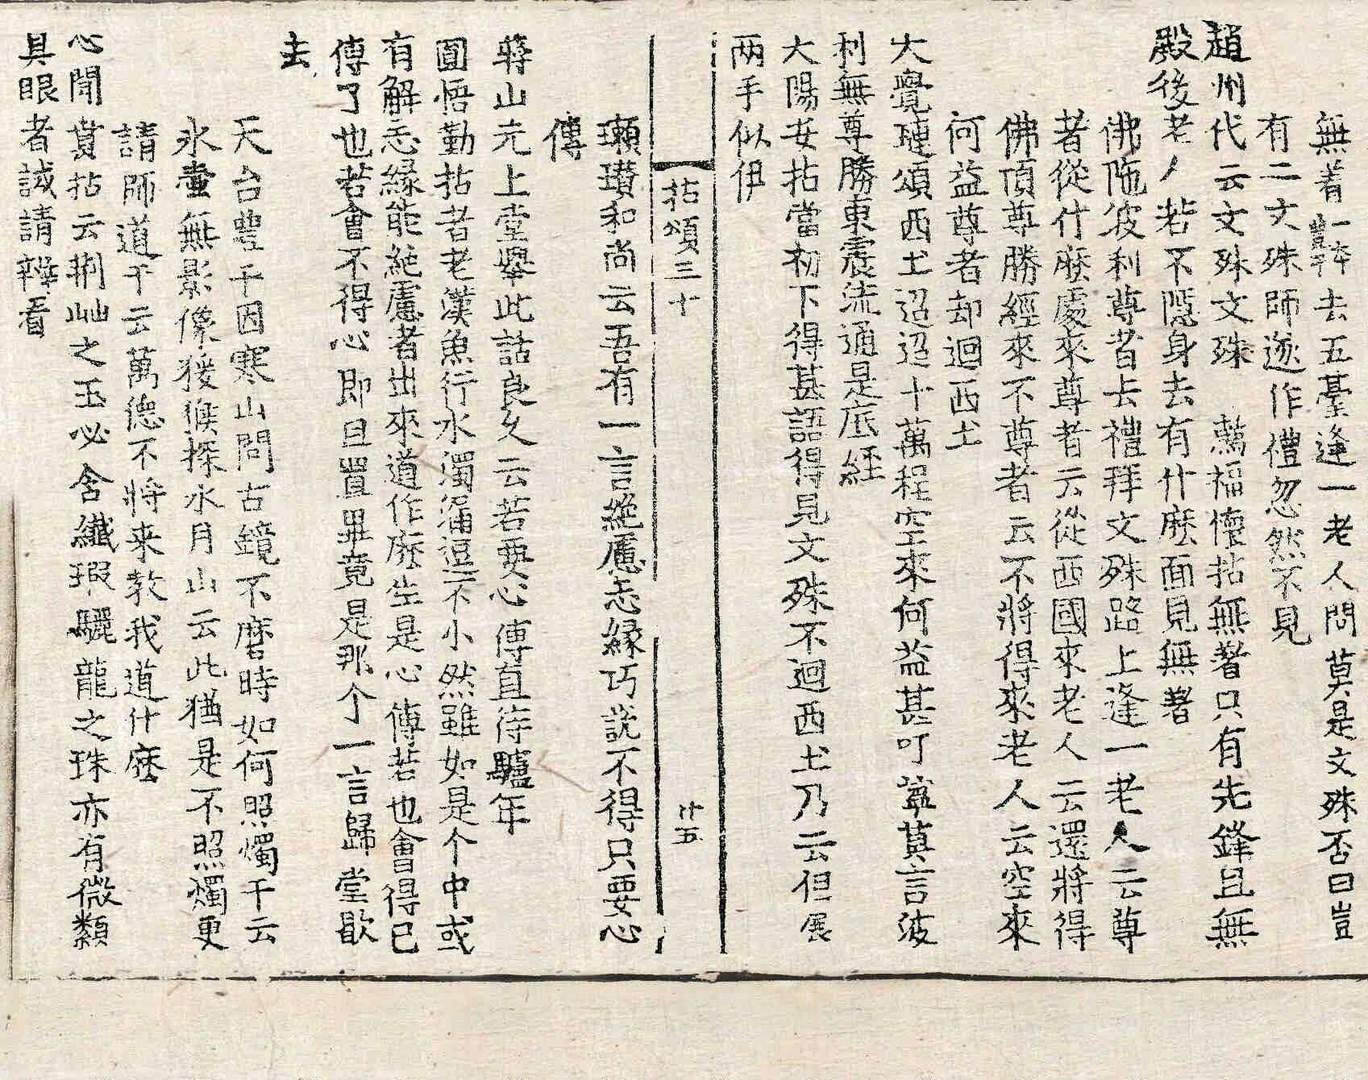 無着一本豊干去五臺逢一老人問莫是文殊否曰豈
有二文殊師迩作禮忽然不見
趙州代云文殊文殊　薦福懷拈無著只有先鋒且無
殿後老人若不隱身去有什麽面見無著
佛陁波利尊者去禮拜文殊路上逢一老人云尊
者從什麽處來尊者云從西國來老人云還將得
佛頂尊勝經來不尊者云不將得來老人云空來
何益尊者却迴西土
大覺璉頌西土迢迢十萬程空來何益甚叮嚀莫言波
利無尊勝東震流通是底經
大陽安拈當初下得甚語得見文殊不迴西土乃云但展
兩手似伊
拈頌三十　廿五
瓚和尚云吾有一言絶慮忘緣巧説不得只要心
傳
蔣山元上堂擧此話良久云若要心傳直待驢年
圓悟勤拈者老漢魚行水濁漏逗不小然雖如是个中或
有解忘緣能絶慮者出來道作麽生是心傳若也會得已
傳了也若會不得心即且置畢竟是那个一言歸堂歇
去
天台豊干因寒山問古鏡不磨時如何照燭干云
氷壷無影像猨猴探水月山云此猶是不照燭更
請師道干云萬德不將來敎我道什麽
心聞賁拈云荊岫之玉必含纖瑕驪龍之珠亦有微纇
具眼者誠請辨看